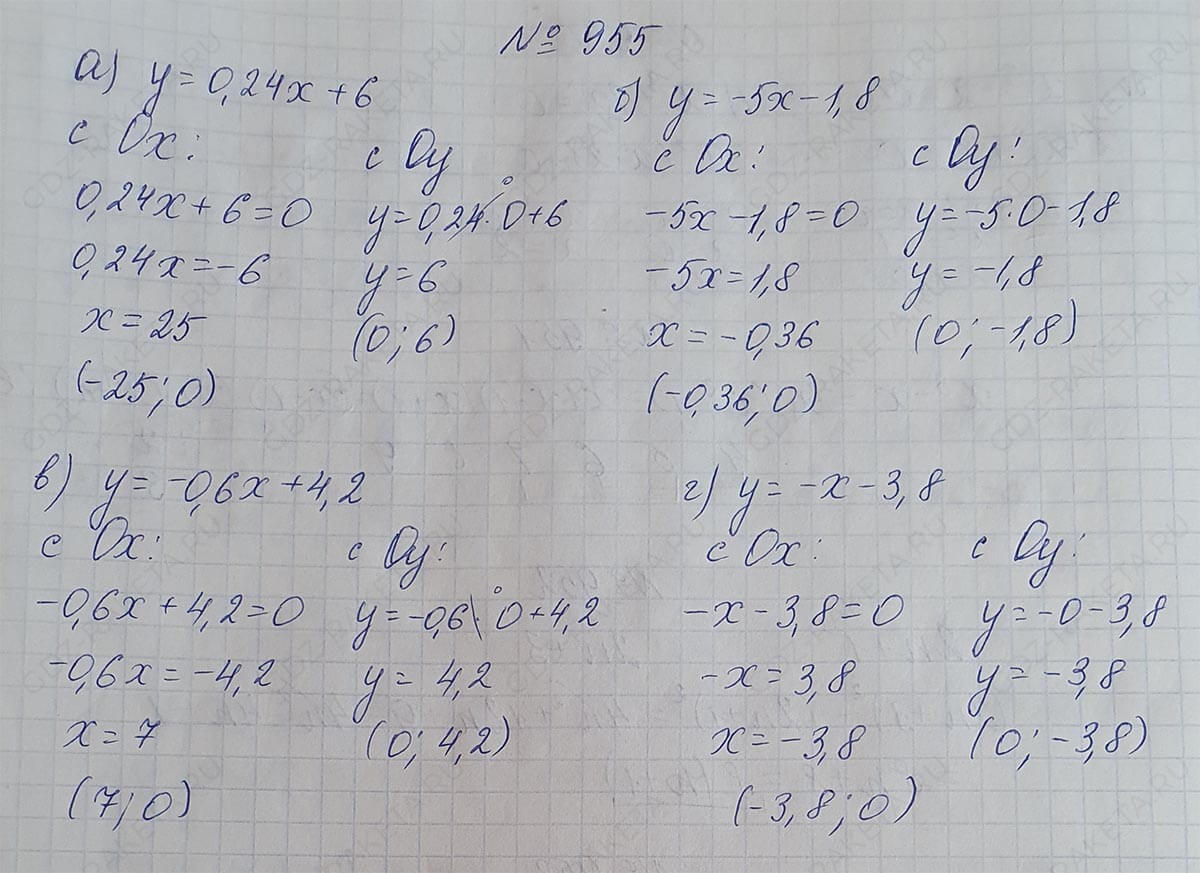 № 955
а) y = 0,24x + 6
с Ox:
0,24x + 6 = 0
0,24x = -6
x = 25
(-25; 0)
с Oy
y = 0,24 · 0 + 6
y = 6
(0; 6)
б) y = -5x - 1,8
с Ox:
-5x - 1,8 = 0
-5x = 1,8
x = -0,36
(-0,36; 0)
с Oy:
y = -5 · 0 - 1,8
y = -1,8
(0; -1,8)
в) y = -0,6x + 4,2
с Ox:
-0,6x + 4,2 = 0
-0,6x = -4,2
x = 7
(7; 0)
с Oy:
y = -0,6 \ 0 + 4,2
y = 4,2
(0; 4,2)
г) y = -x - 3,8
с Ox:
-x - 3,8 = 0
-x = 3,8
x = -3,8
(-3,8; 0)
с Oy:
y = -0 - 3,8
y = -3,8
(0; -3,8)
GDZ-RAKETA.RU